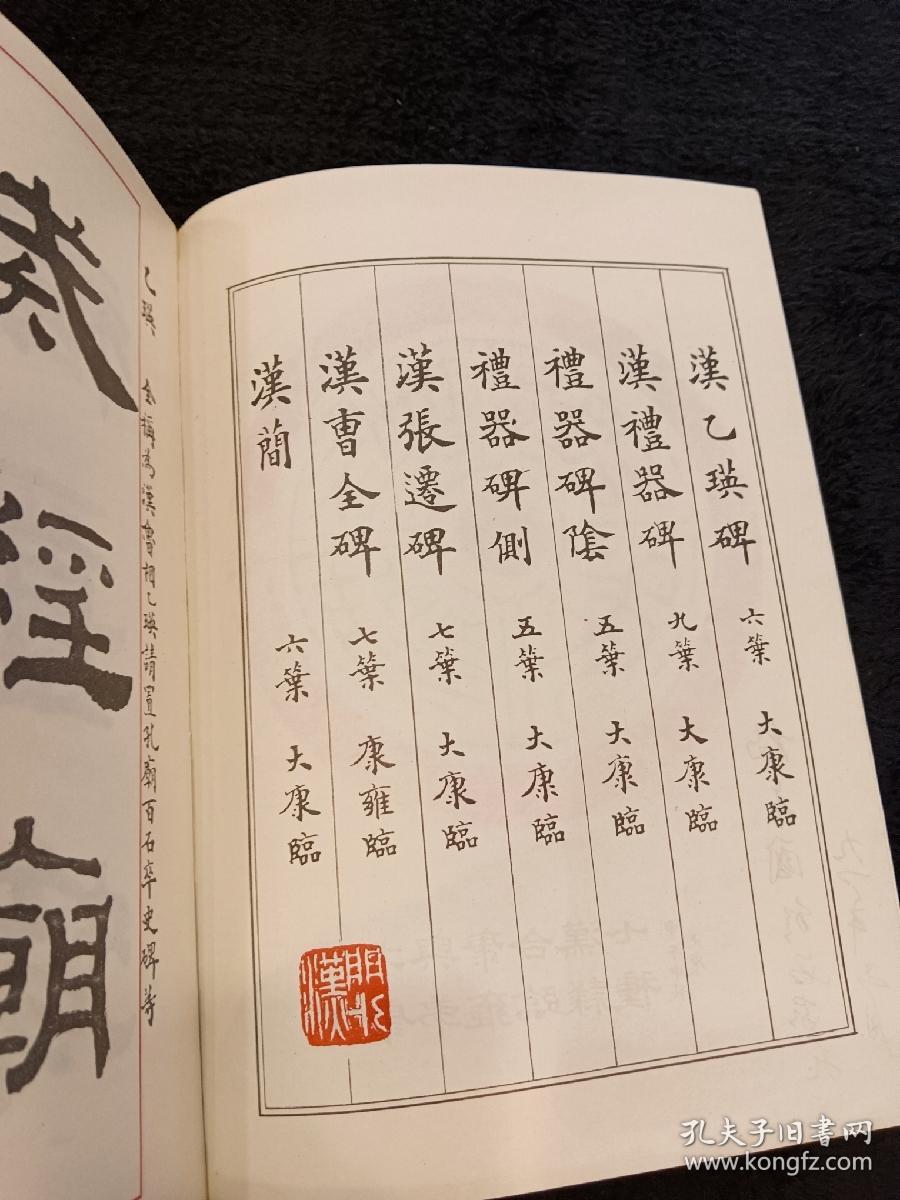 漢乙瑛碑 六葉 大康臨
漢禮器碑 九葉 大康臨
禮器碑陰 五葉 大康臨
禮器碑側 五葉 大康臨
漢張遷碑 七葉 大康臨
漢曹全碑 七葉 康雍臨
漢簡 六葉 大康臨
乙瑛 全稱為漢魯相乙瑛請置孔廟百石卒史碑
廟
孔夫子旧书网
www.kongfz.com